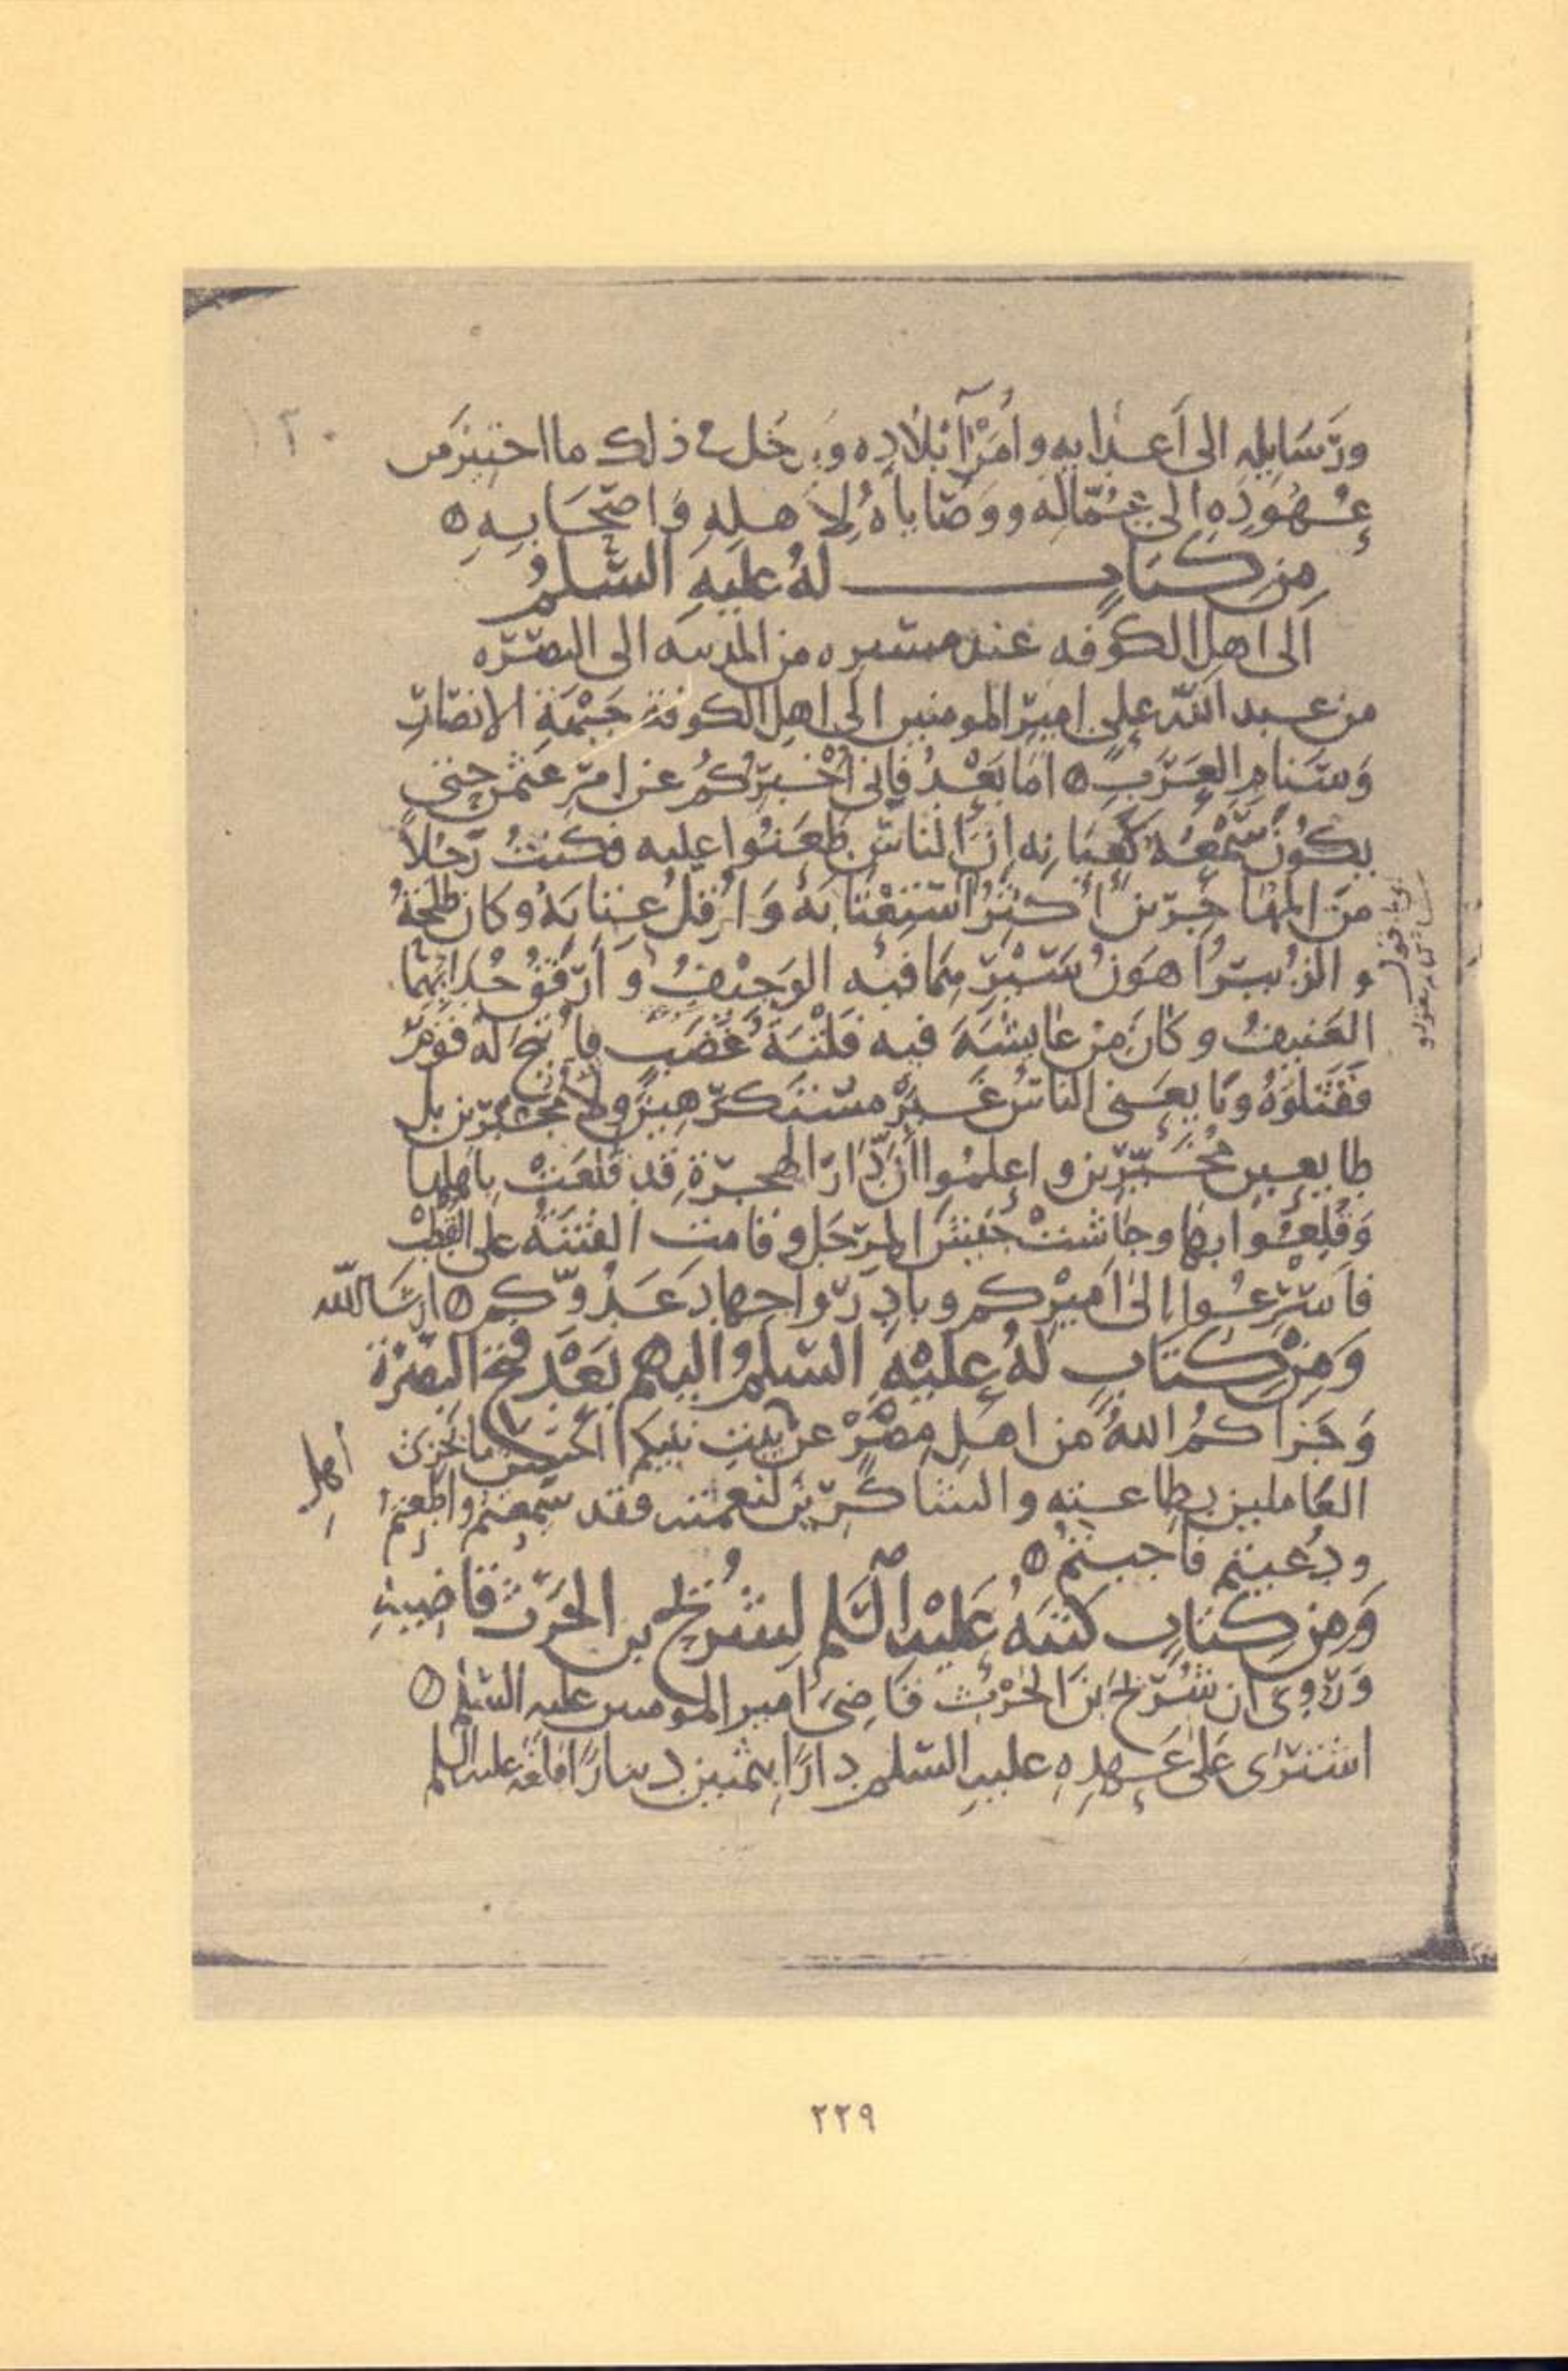 ورَسَايله الى اَعدَايهِ واُمَرَآءِ بلَادِه وَيدخُل في ذلك ما اختير من
عُهُودِهِ الى عُمّاله ووَصَاياهُ لِاَهلِهِ وَاصحَابِهِ
مِن كِتَابٍ لهُ عليهِ السّلمُ
الى اهل الكوفه عند مسيره من المدينه الى البصره
من عبد الله على امير المومنين الى اهل الكوفة جَبْهَةِ الانصَارِ
وَسَنامِ العَرَبِ اما بَعْدُ فانى اُخْبِرُكُم عن امر عثمن حتى
يكُونَ سَمْعُه كَعِيَانِه اِنَّ الناسَ طَعَنُوا عليه فكنتُ رَجُلاً
منَ المهَاجِرين اُكثِرُ استِعْتَابَهُ وَاُقِلُّ عِتَابَهُ وكان طلحةُ
والزُبيرُ اهوَنُ سَيْرِهِمَا فيه الوَجيْفُ و اَرفَقُ حُدَايِهِمَا
العَنيفُ وكانَ مِن عايشَهَ فيه فَلْتَةُ غَضَبٍ فاُتِيحَ له قومٌ
فَقَتَلوهُ وبَايعَنى الناسُ غيرَ مستكرَهِينَ ولا مُجبَرين بل
طايعين مُخَيَّرين واعلمُوا انّ دَارَ الهجرة قد قَلَعَتْ باهلها
وَقَلعُوا بها وجاشتْ جَيشَ المِرجَل وقامت الفتنَةُ على القُطبْ
فاَسْرِعُوا الىٰ اَميرِكم وبادِرُوا جهادَ عَدُوّكم ان شا الله
وَمِنْ كتابٍ لهُ عليْهِ السّلمُ اليهم بَعْدَ فتح البصْرَة
وَجَزَاكمُ اللهُ من اهلِ مِصْرٍ عن بيتِ نبيكم احسَنَ ما يجزى
اهل
العَاملين بطاعته والشاكرين لنعمته فقد سَمِعتم واطَعتم
ودُعيتم فاجبتم
وَمِن كِتَابٍ كتبَهُ عَليْه السَّلم لِشُرَيح بن الحَرث قاضِيهِ
وَرُوِىَ ان شُرَيحَ بنَ الحَرْث قاضِىَ امير المومنين عليه السّلم
اشترَى عَلى عَهدِهِ عليهِ السّلم دارًا بثمنين دينارًا فبلغه عليه السلم
٢٢٩